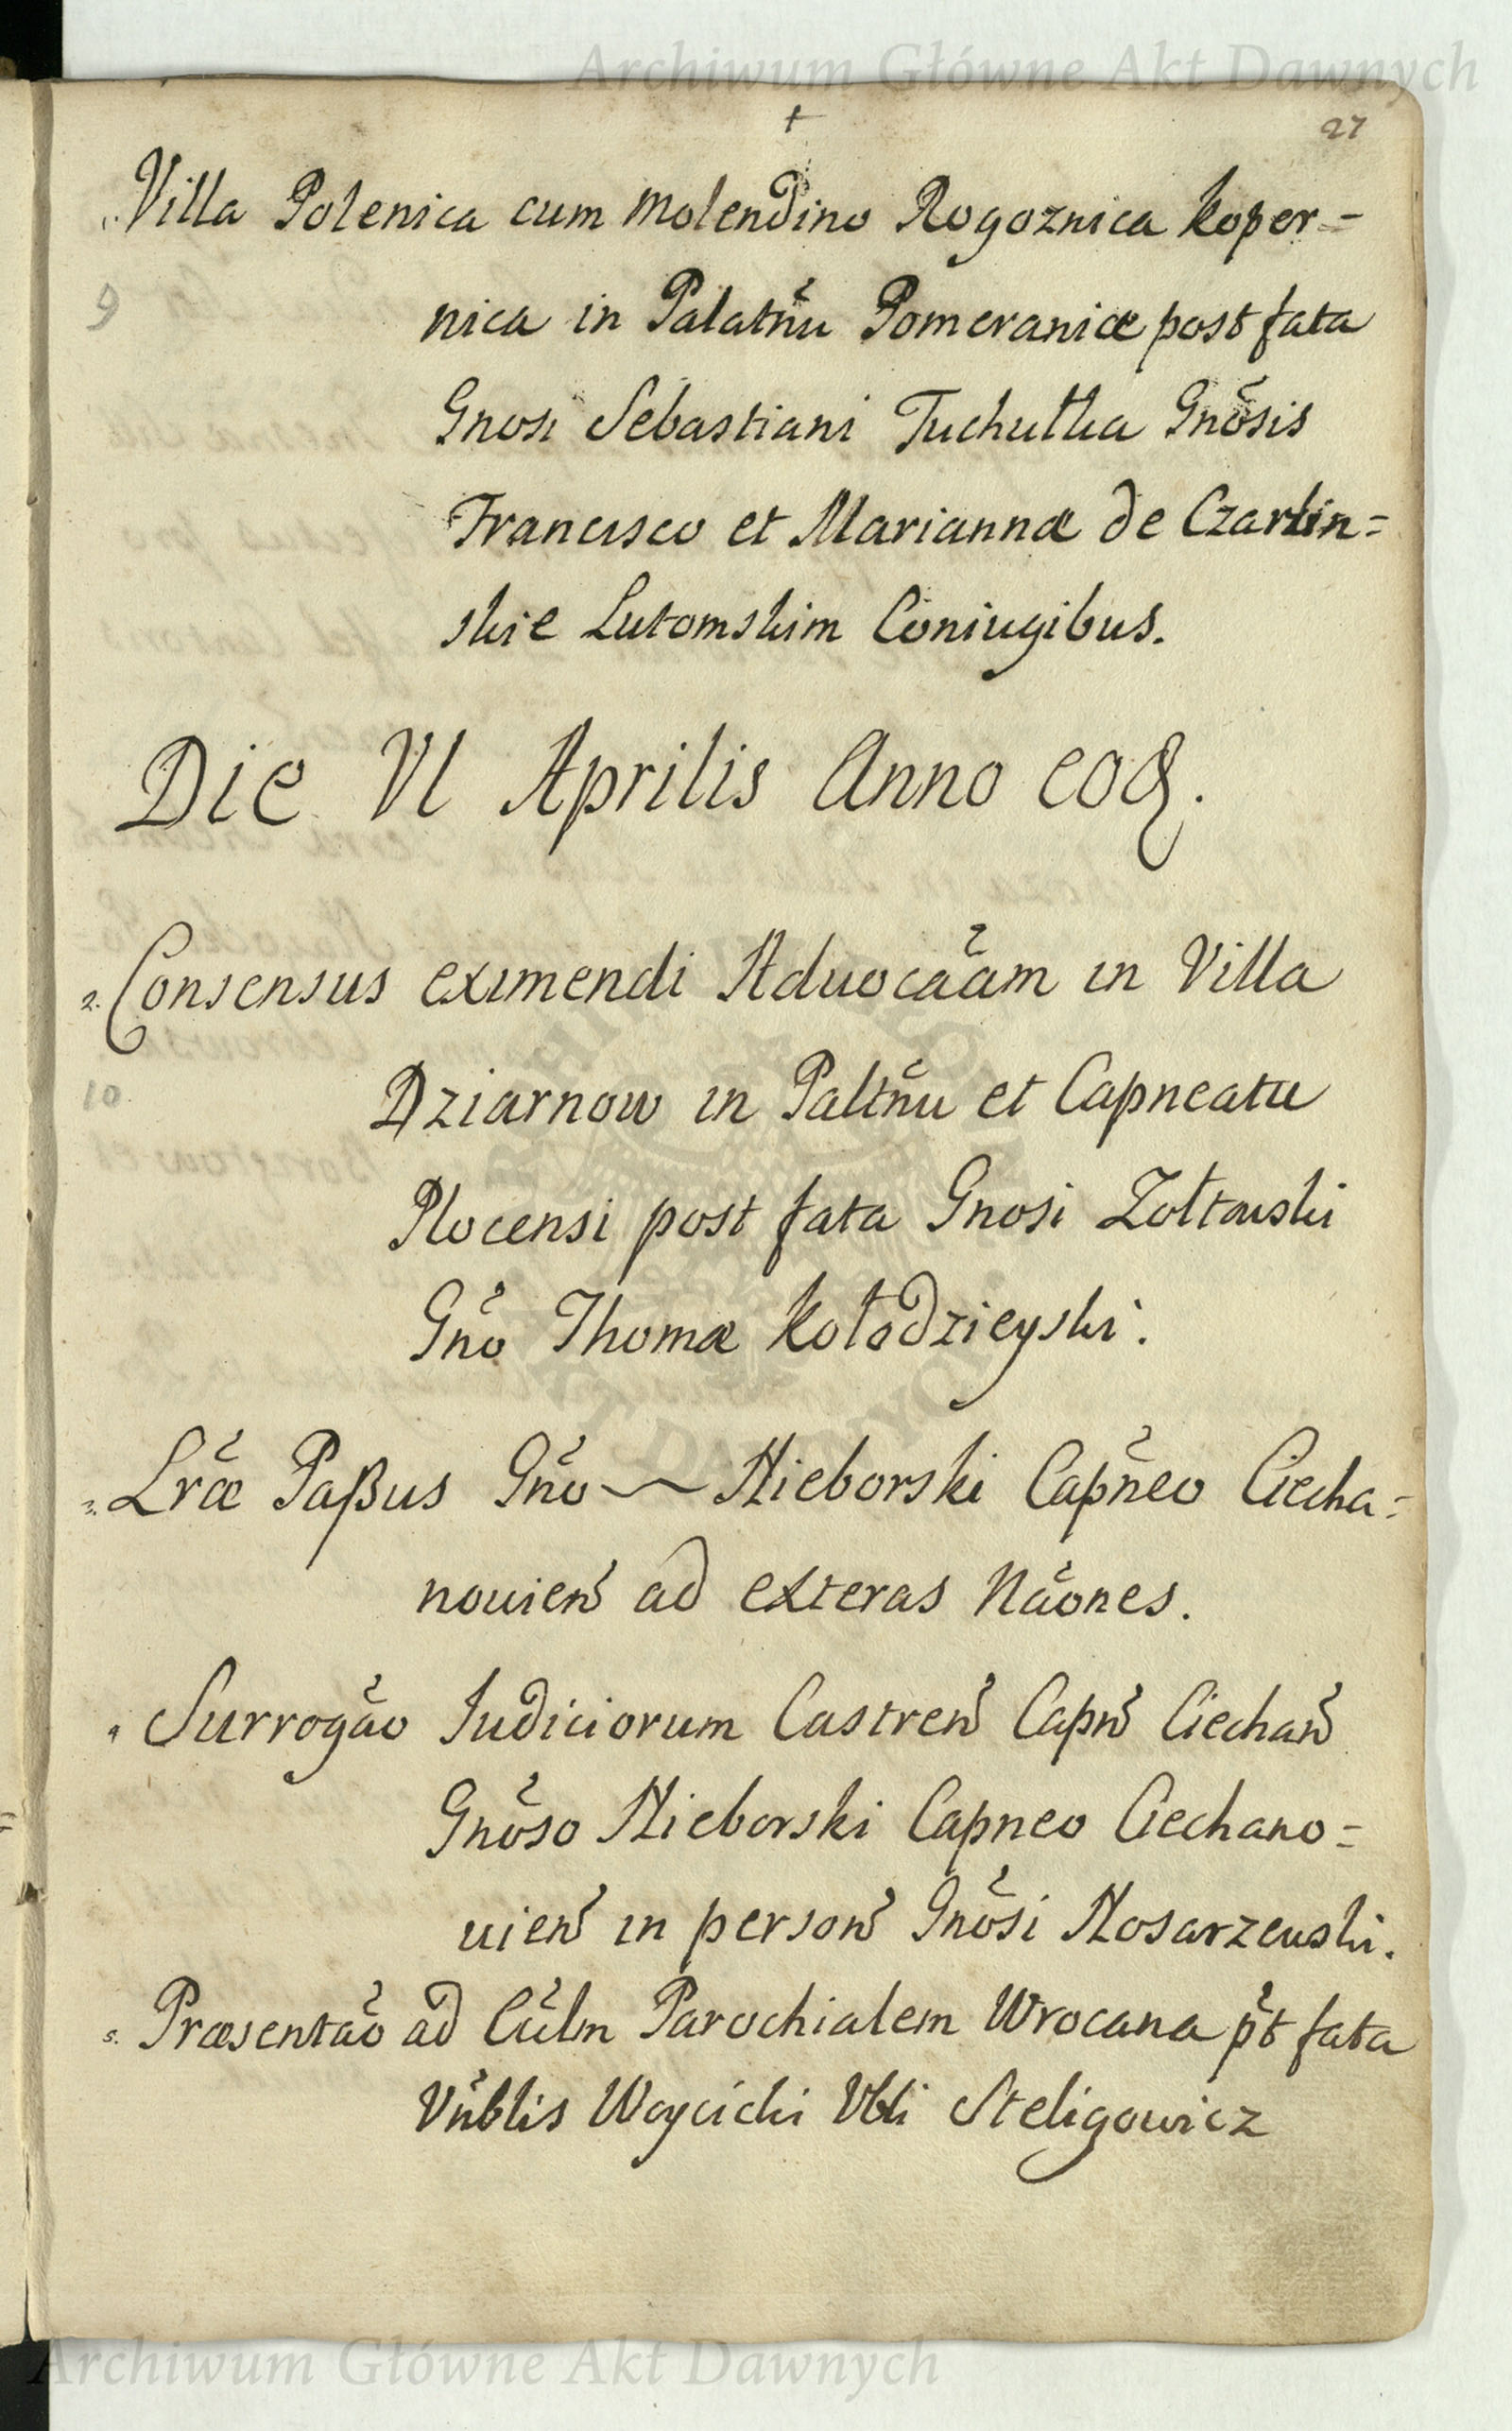 Archiwum Główne Akt Dawnych
+
27
Villa Polenica cum Molendino Rogoznica Koper=
9
nica in Palatñu Pomeraniæ post fata
Gnosi Sebastiani Tuchułka Gnõsis
Francisco et Mariannæ de Czarlin=
skie Lutomskim Coniugibus.
Die VI Aprilis Anno eoq.
2. Consensus eximendi Aduocãam in Villa
10
Dziarnow in Paltñu et Capneatu
Plocensi post fata Gnosi Zołtowski
Gñõ Thomæ Kołodzieyski.
3. Lræ Paßus Gñõ — Nieborski Capñeo Ciecha=
nouień ad exteras Nãones.
4 Surrogão Iudiciorum Castreń Capń Ciechań
Gnõso Nieborski Capneo Ciechano=
uień in persoń Gnõsi Nosarzewski.
5. Præsentão ad Ecclm Parochialem Wrocana p̃t fata
Vñblis Woycicki Vbli Steligowicz
Archiwum Główne Akt Dawnych